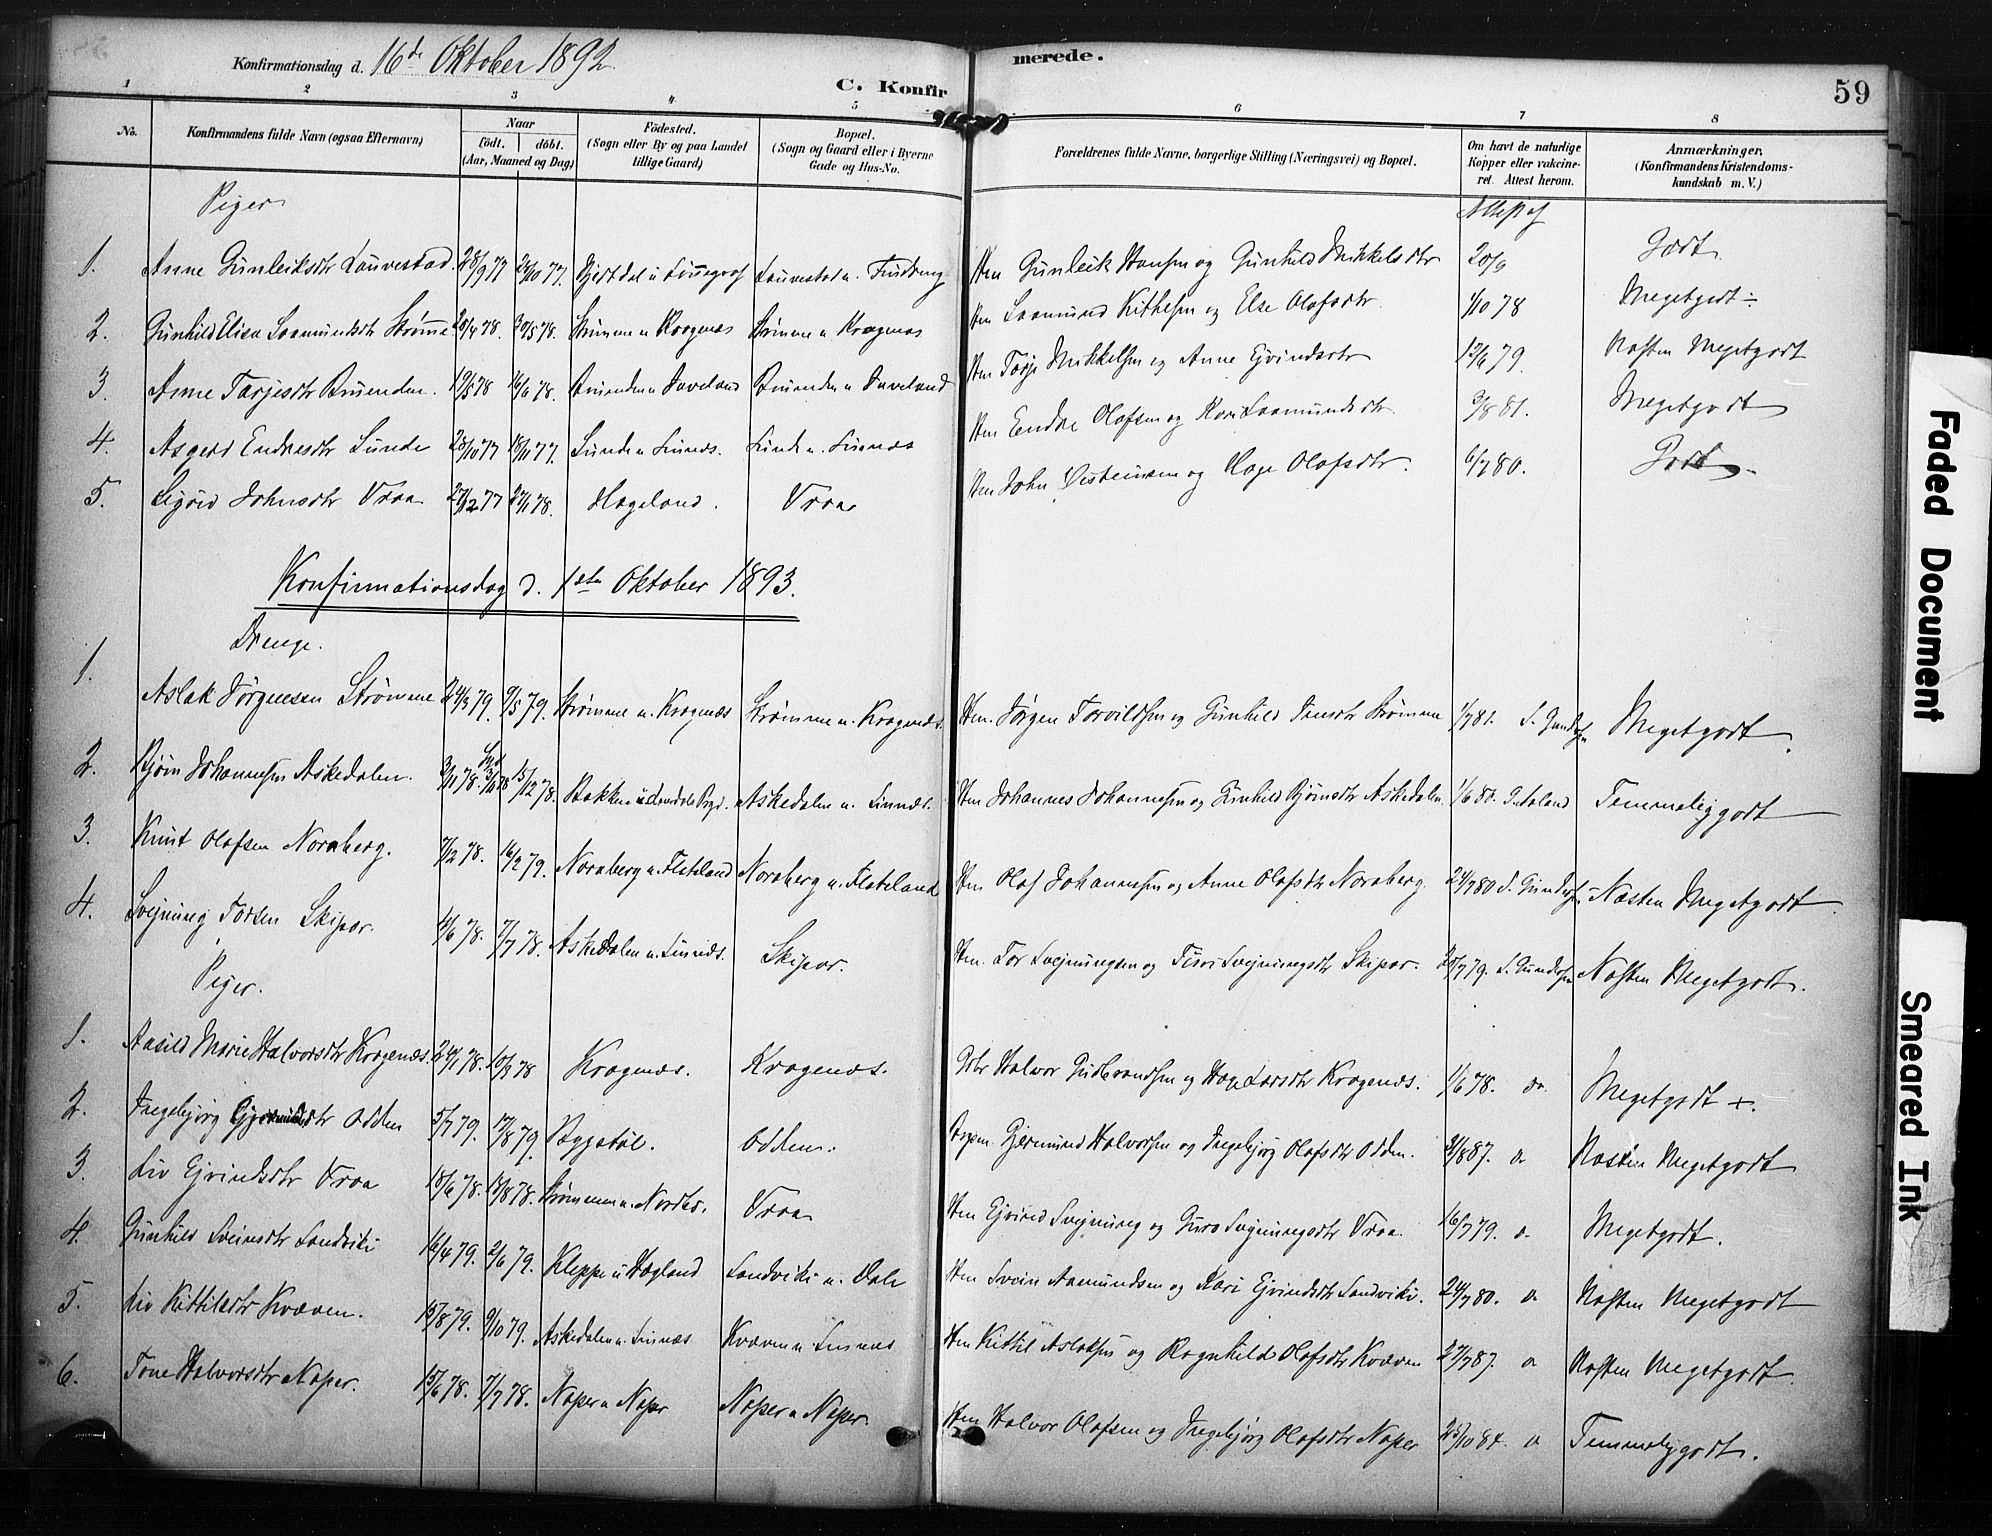 Konfirmationsdag d. 16de Oktober 1892
C. Konfirmerede.
59
1 2 3 4 5 6 7 8
No.
Konfirmandens fulde Navn (ogsaa Efternavn)
Naar
födt. döbt.
(Aar, Maaned og Dag)
Födested.
(Sogn eller By og paa Landet
tillige Gaard)
Bopæl.
(Sogn og Gaard eller i Byerne
Gade og Hus-No.
Forældrenes fulde Navne, borgerlige Stilling (Næringsvei) og Bopæl.
Om havt de naturlige
Kopper eller vakcine-
ret. Attest herom.
Anmærkninger,
(Konfirmandens Kristendoms-
kundskab m. V.)
Piger
1. Anne Gunleiksdtr Lauvestad. 28/9 77 Lauvestad u. Hm Gunleik Hansen og Gunhild Mikkelsdtr 20/9 Godt
2. Gunhild Elisa Saamundsdtr Strømme 20/4 78. 30/5 78. Strömme u Kragenæs Strömme u Kragenæs Hm Saamund og Else Olafsdtr. 1/10 78 Megetgodt ÷
3. Anne Tarjesdtr Bruenden. 19/5 78 16/6 78. Bruenden u Haveland Bruenden u Haveland Hm Tarje Mikkelsen og Anne Ejvindsdtr 13/6 79. Næsten Megetgodt
4. Asgerd Endresdtr Lunde 28/10 77 18/11 77. Lunde u Linnæs. Lunde u. Linnæs Hm Endre Olafsen og Kari Saamundsdtr 3/8 81. Megetgodt
5. Sigrid Johnsdtr Vraa 27/12 77 27/1 78. Hageland. Vraa Hm John og Hage Olafsdtr. 6/7 80. Godt
Konfirmationsdag d. 1ste Oktober 1893.
Drenge.
1. Aslak Jörgensen Strömme 24/3 79. 9/5 79. Strömme u. Kragenæs Strömme u. Kragenæs. Hm. Jörgen Torvildsen og Gunhild Jensdtr Strömme 1/7 81. S. Gundersen Megetgodt.
2. Björn Johannesen Askedalen. 3/11 78. 15/12 78. Bakken Askedalen u. Linnæs. Hm Johannes Johannesen og Gunhild Björnsdtr Askedalen. 1/6 80. Temmeliggodt
3. Knut Olafsen Noraberg. 7/12 78. 16/2 79. Noraberg u. Flateland Noraberg u. Flateland Hm Olaf Johannesen og Anne Olafsdtr Noraberg. 24/7 80 S. Gundersen Næsten Megetgodt.
4. Svejnung Torsen Skipar. 10/6 78. 7/7 78. Askedalen u. Linnæs. Skipar. Hm. Tor Svejnungsen og Svejnungsdtr Skipar. 20/7 79. S. Gundersen Næsten Megetgodt.
Piger.
1. Aasild Marie Halvorsdtr Kragenæs. 24/1 78. 10/3 78 Kragenæs. Kragenæs. Gbr Halvor Gudbrandsen og Hage Larsdtr Kragenæs. 1/6 78. do. Megetgodt +.
2. Ingebjörg Gjermundsdtr Odden 5/7 79. 17/8 79. Bygstöl. Odden. Gjermund Halvorsen og Ingebjörg Olafsdtr Odden. 31/8 87. do Næsten Megetgodt
3. Liv Ejvindsdtr Vraa 18/6 78. 18/8 78. Strömmen u. Nordbö. Vraa Hm Ejvind Svejnung og Guro Svejnungsdtr Vraa. 16/7 79. do Megetgodt.
4. Gunhild Sveinsdtr Sandviki 16/4 79. 2/6 79. Kleppe u Hægland Sandviki u. Dale Hm Svein Aamundsen og Kari Ejvindsdtr Sandviki. 24/7 80. do Næsten Megetgodt
5. Liv Kittilsdtr Kvæven. 15/8 79. 9/10 79. Askedalen u. Linnæs Kvæven u Linnæs Hm Kittil Aslaksen og Ragnhild Olafsdtr Kvæven 27/7 87. do Næsten Megetgodt.
6. Tone Halvorsdtr Naper. 15/6 78. 7/7 78. Naper u Naper Naper u Naper. Hm Halvor Olafsen og Ingebjörg Olafsdtr Naper 25/10 84. do Temmeliggodt.
Faded Document
Smeared Ink